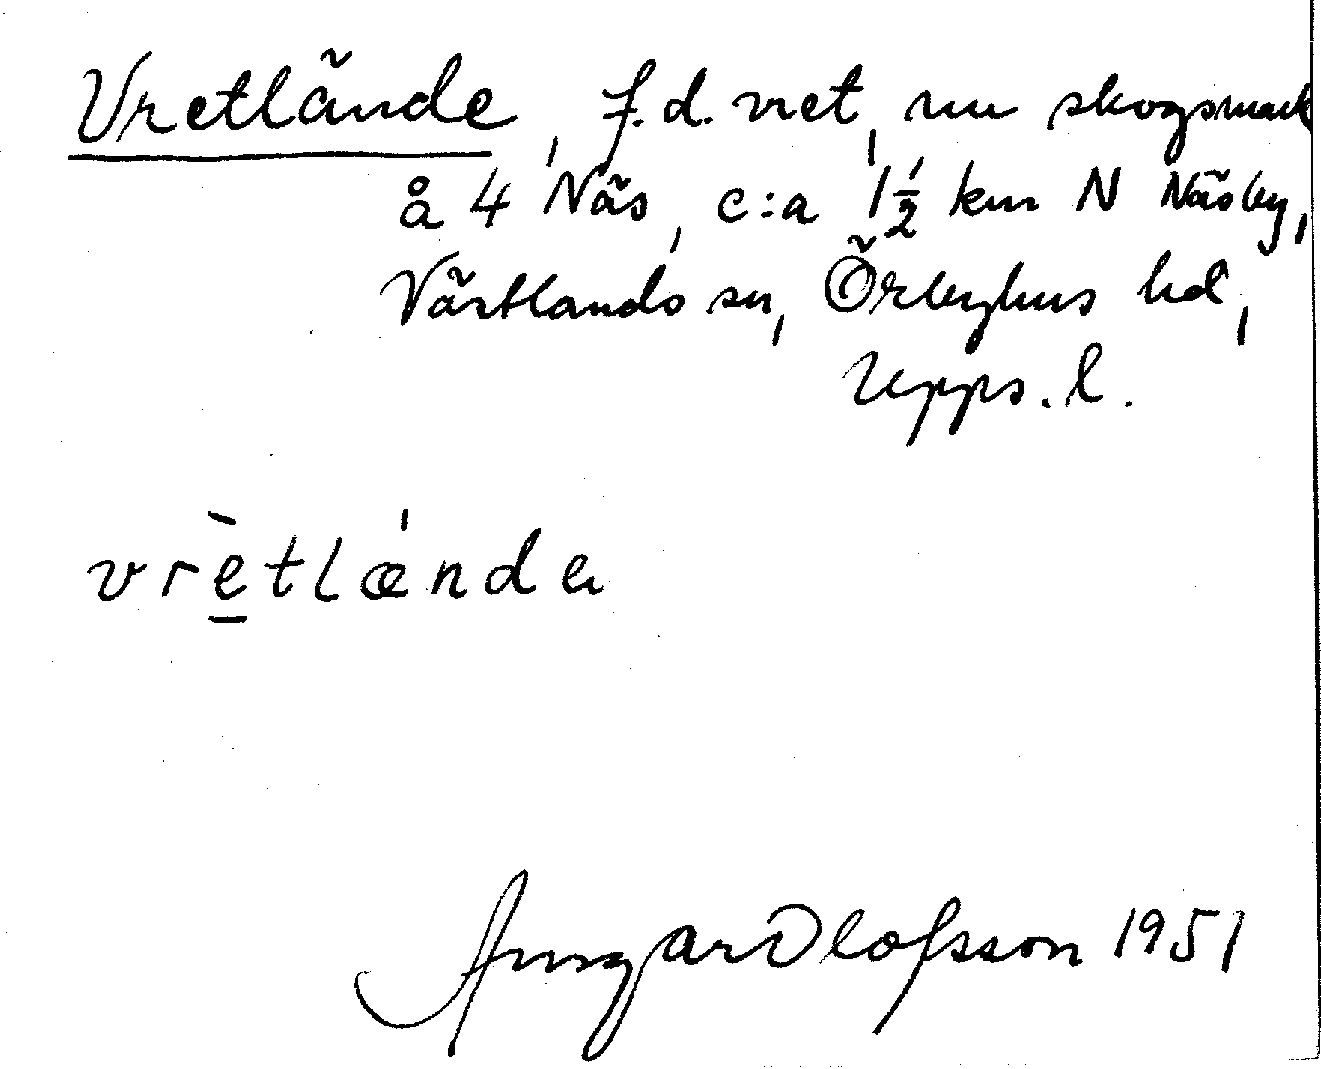 Vretlände, f.d. vret, nu skogsmark
å 4 Näs, c:a 1½ km N Näsby,
Vårtlands sn, Örbyhus hd,
Upps. l.
vrètlǽnda
Ansgar Olofsson 1951